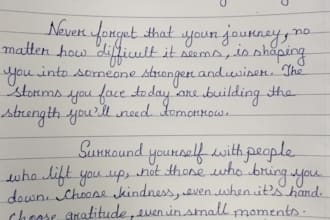 Never forget that your journey, no
matter how difficult it seems, is shaping
you into someone stronger and wiser. The
storms you face today are building the
strength you'll need tomorrow.
Surround yourself with people
who lift you up, not those who bring you
down. Choose kindness, even when it's hard.
Choose gratitude, even in small moments.